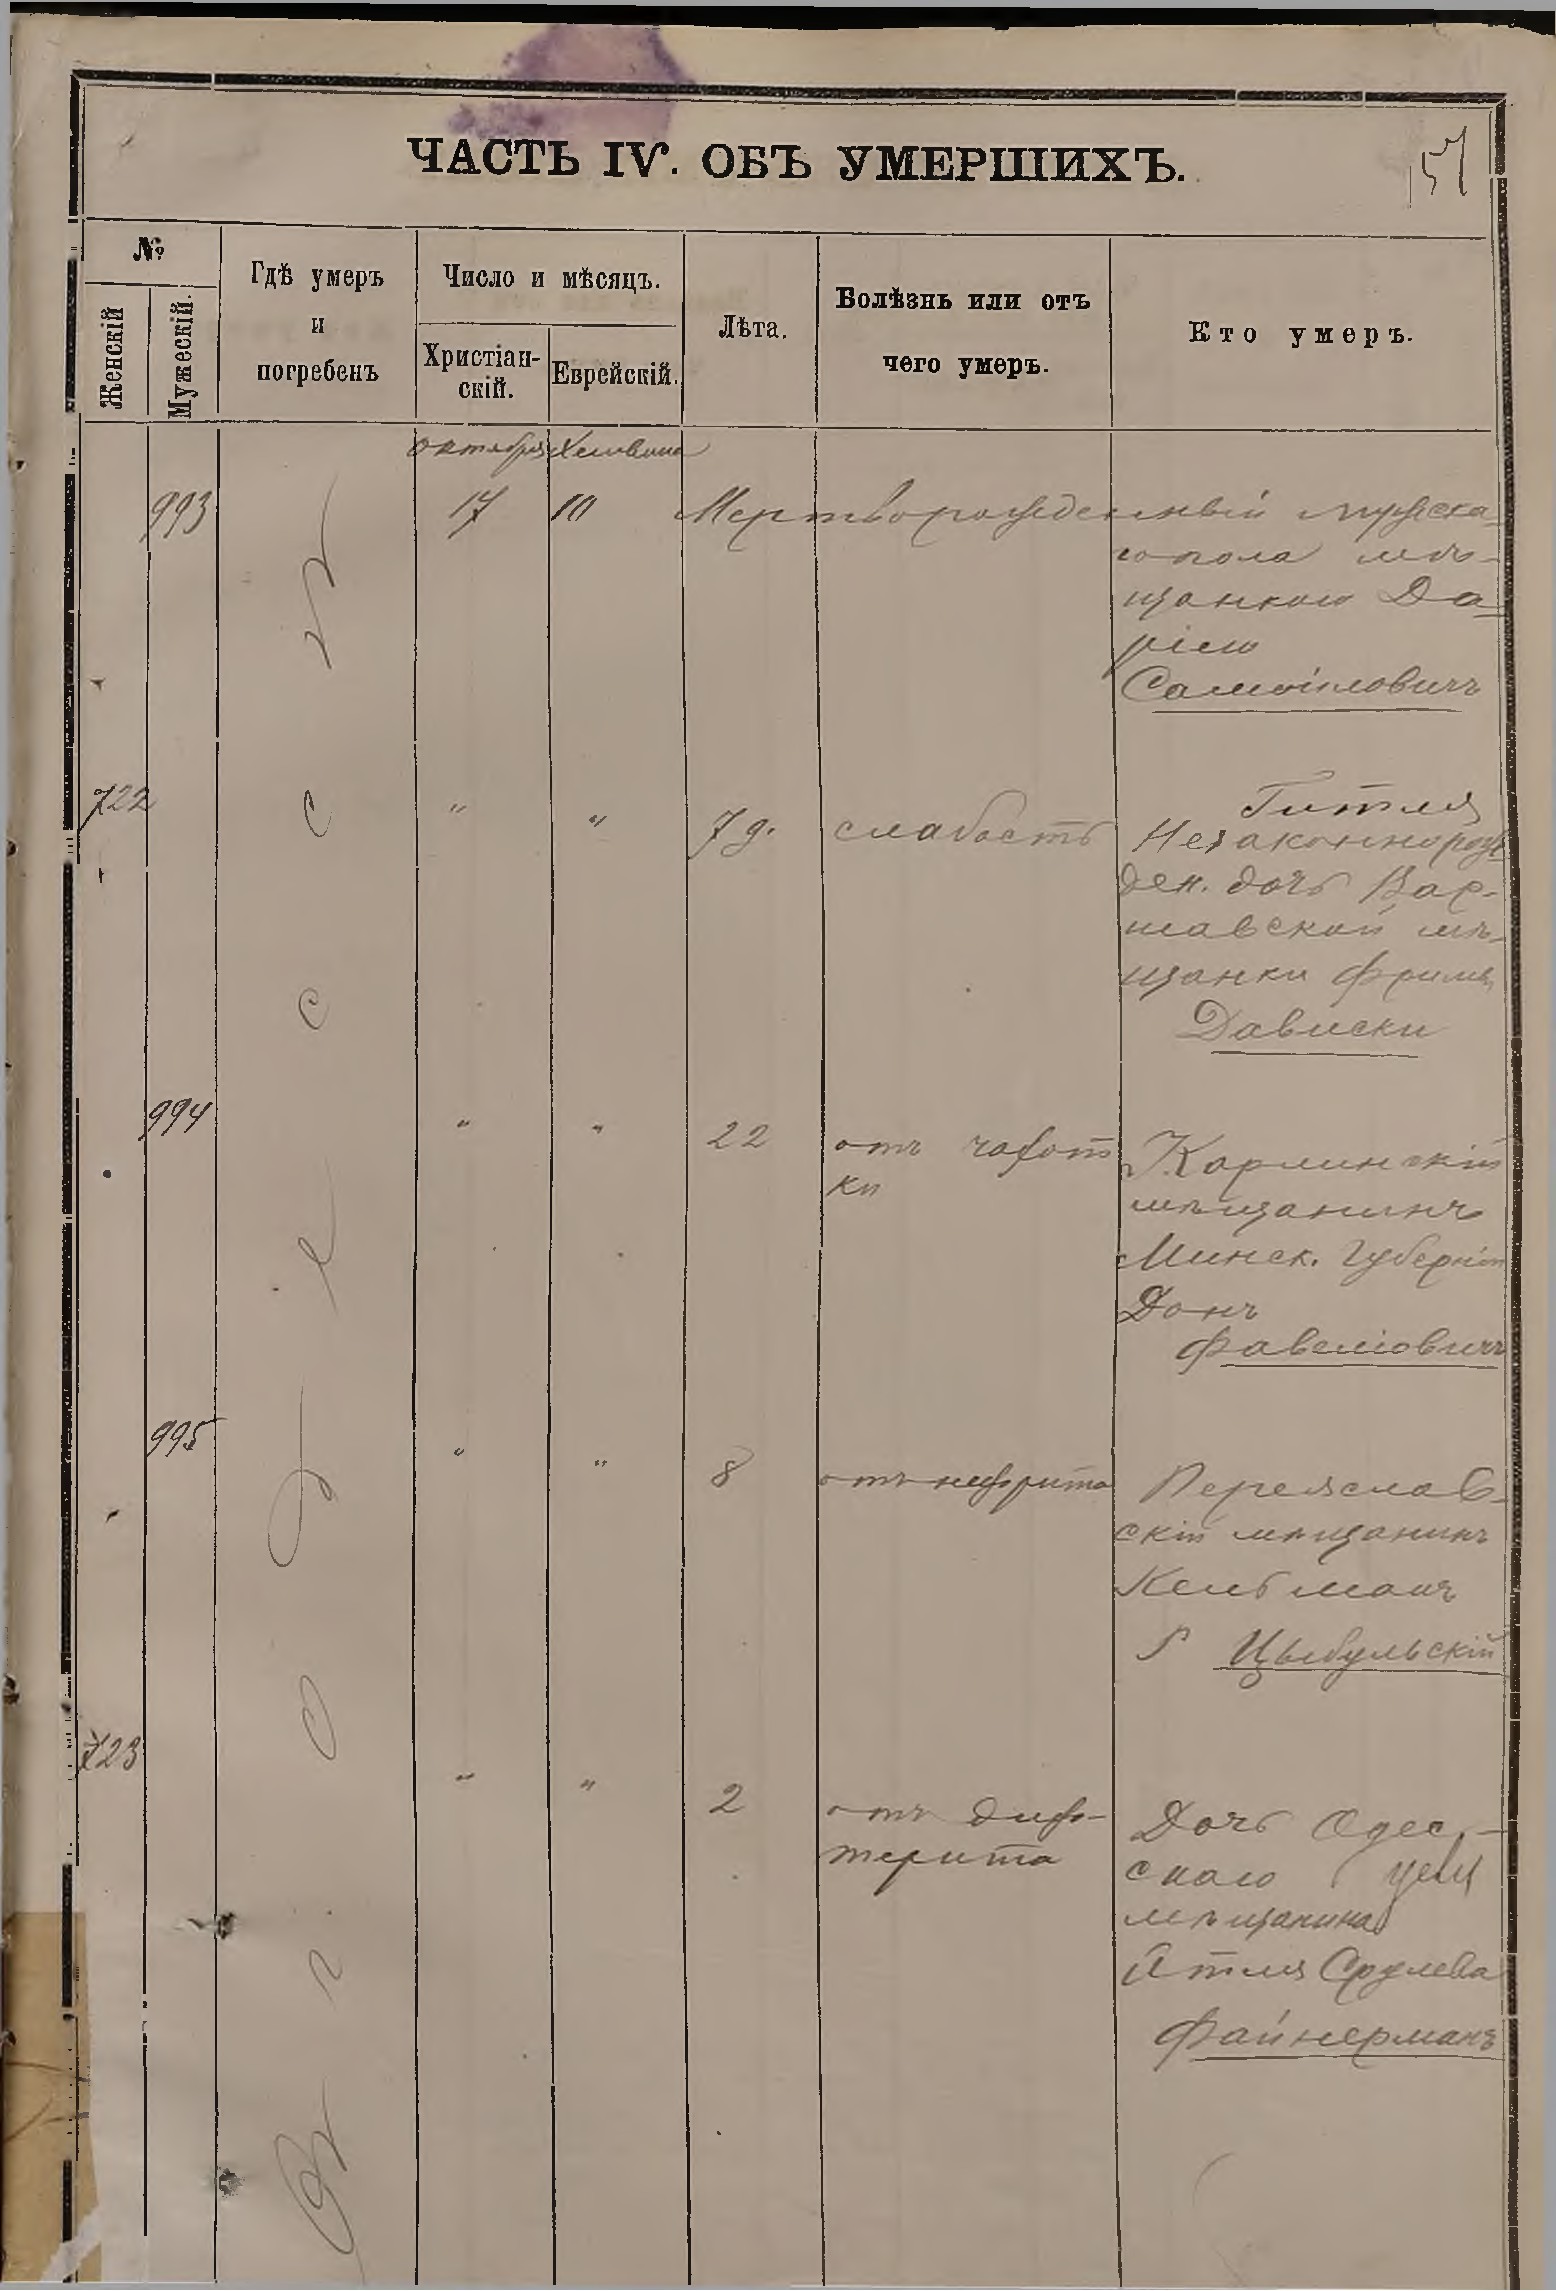 ЧАСТЬ IV. ОБЪ УМЕРШИХЪ.
157
№
Женскій
Мужескій.
Гдѣ умеръ
и
погребенъ
Число и мѣсяцъ.
Христіан-
скій.
Еврейскій.
Лѣта.
Болѣзнь или отъ
чего умеръ.
Кто умеръ.
октября Хешвана
993 17 10 Мертворожденный мужска-
го пола мѣ-
щанкою Да-
ріею
Самойловичъ
722 " " 7 д. слабость Гитля
Незаконнорож
ден. дочь Вар-
шавской мѣ-
щанки Фримы
Дависки
994 " " 22 отъ чахот
ки
Карлинскій
мѣщанинъ
Минск. Губерніи
995 " " 8 отъ нефрита Переяслав-
скій мѣщанинъ
Кельманъ
Цыбульскій
723 " " 2 отъ диф-
терита
Дочь Одес-
скаго
мѣщанина
Срулева
Файнерманъ
Въ г. Одессѣ